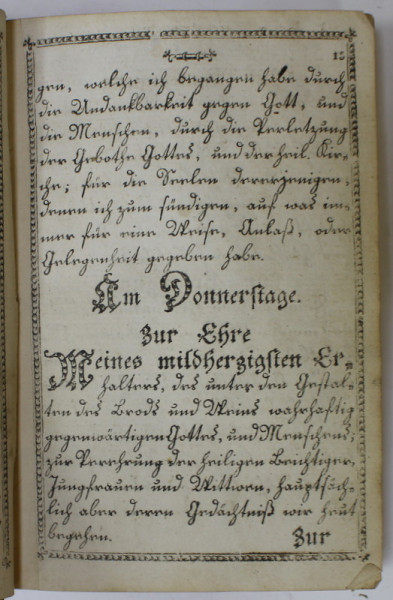 13
gen, welche ich begangen habe durch
die Undankbarkeit gegen Gott, und
die Menschen, durch die Verletzung
der Gebothe Gottes, und der heil. Kir-
che; für die Seelen dererjenigen,
denen ich zum sündigen, auf was im-
mer für eine Weise, Anlaß, oder
Gelegenheit gegeben habe.
Am Donnerstage.
Zur Ehre
Meines mildherzigsten Er-
halters, des unter den Gestal-
ten des Brods und Weins wahrhaftig
gegenwärtigen Gottes, und Menschens,
zur Verehrung der heiligen Beichtiger,
Jungfrauen und Wittwen, hauptsäch-
lich aber deren Gedächtniß wir heut
begehen.
Zur